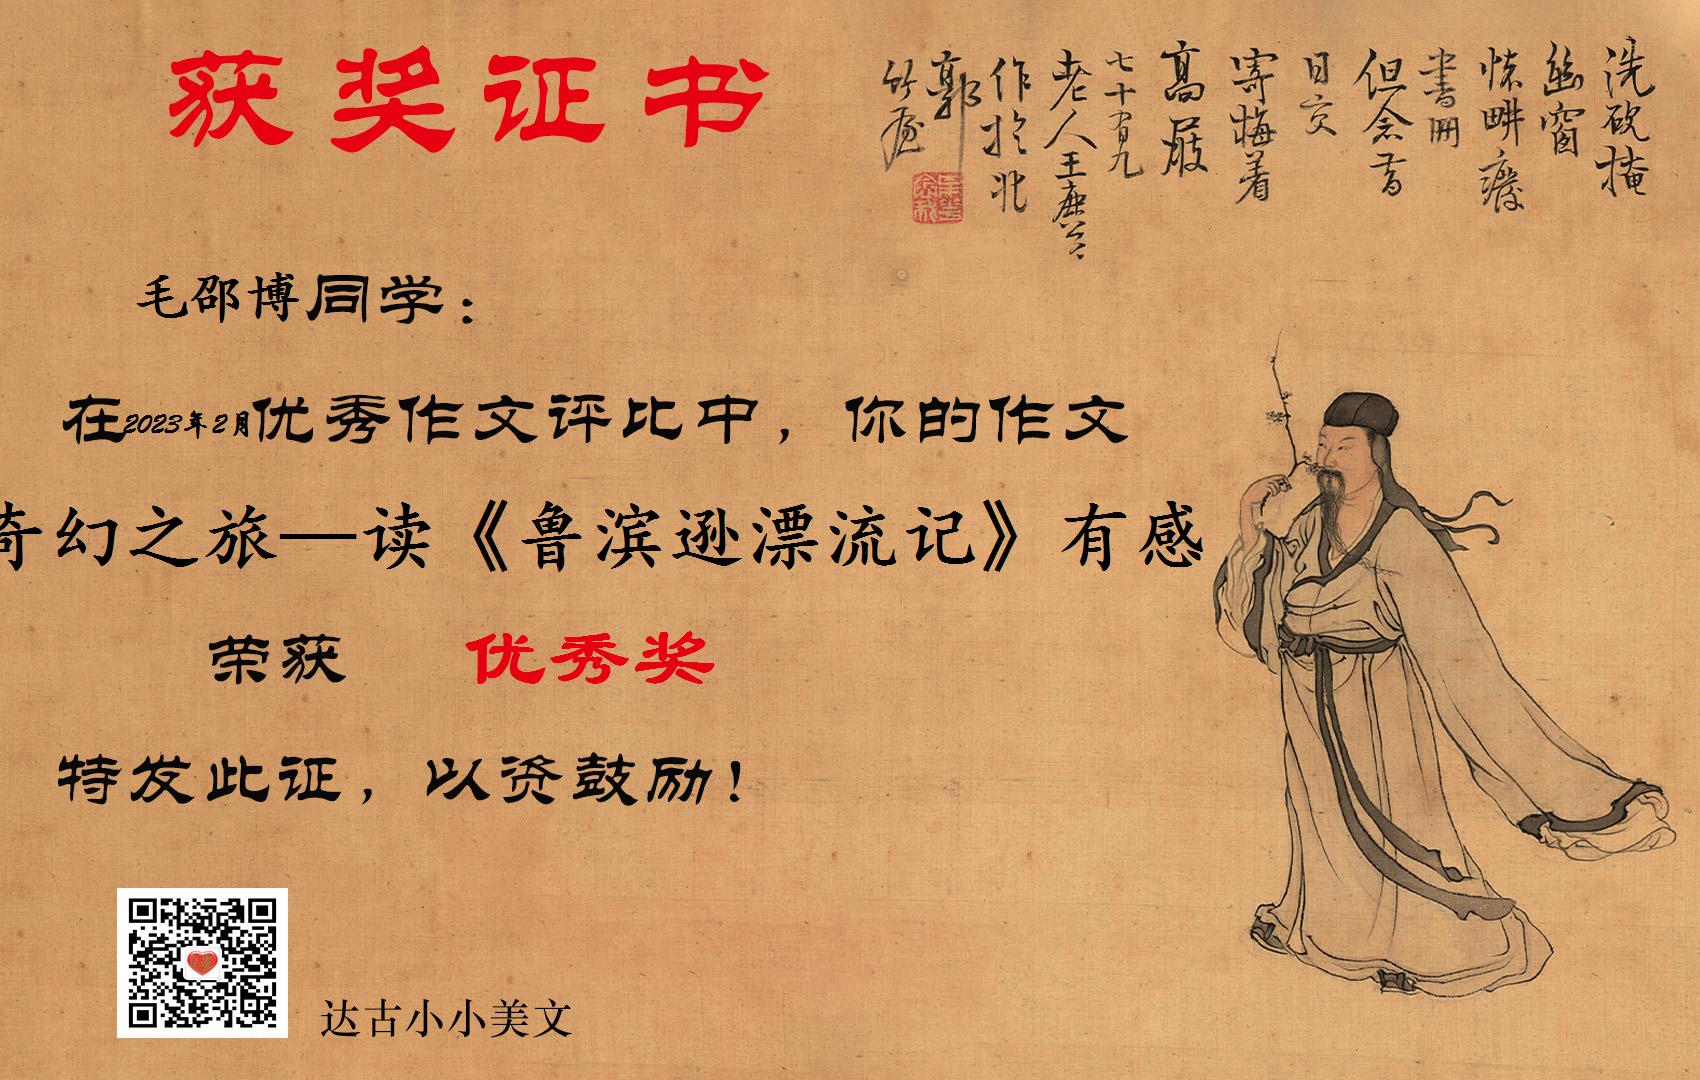 获奖证书
洗砚掩
幽窗
懐畊癈
書冊
但念昔
日交
寄梅着
高歌
七十有九
老人王鹿公
作於北
郭
竹庭
毛邵博同学：
在2023年2月优秀作文评比中，你的作文
奇幻之旅—读《鲁滨逊漂流记》有感
荣获 优秀奖
特发此证，以资鼓励！
达古小小美文